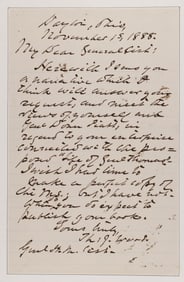 Dayton, Ohio,
November 13, 1888.
My Dear General Cist:
Herewith I send you
a narrative which I
think will answer your
request, and meet the
views of yourself and
in
regard to your enterprise
connected with the
Life of Genl Thomas.
I wish I had time to
make a perfect copy of
the but I have not.
When do you expect to
publish your book.
Yours truly,
Th. J. Wood.
Genl H. M. Cist.